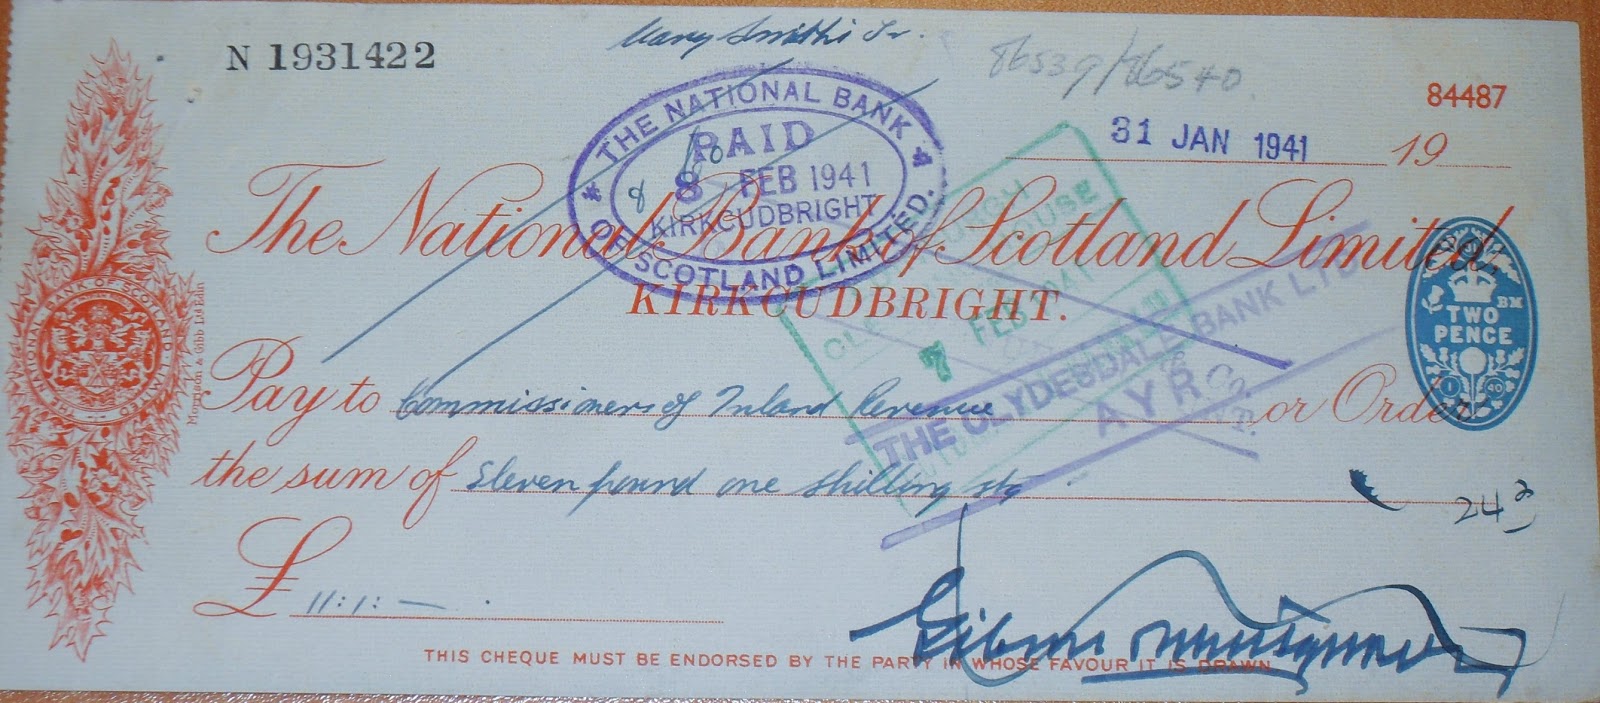 Mary Smith's Tr.
N 1931422
86539/86540
84487
31 JAN 1941
19
THE NATIONAL BANK OF SCOTLAND LIMITED.
PAID
8 FEB 1941
KIRKCUDBRIGHT
The National Bank of Scotland Limited
KIRKCUDBRIGHT.
HOUSE
7 FEB 1941
THE CLYDESDALE BANK LTD
AYR
TWO
PENCE
BM
1 40
THE NATIONAL BANK OF SCOTLAND LIMITED
Morrison & Gibb Ltd Edin
Pay to Commissioners of Inland Revenue or Order
the sum of Eleven pound one shilling stg
24
£ 11:1:—
THIS CHEQUE MUST BE ENDORSED BY THE PARTY IN WHOSE FAVOUR IT IS DRAWN